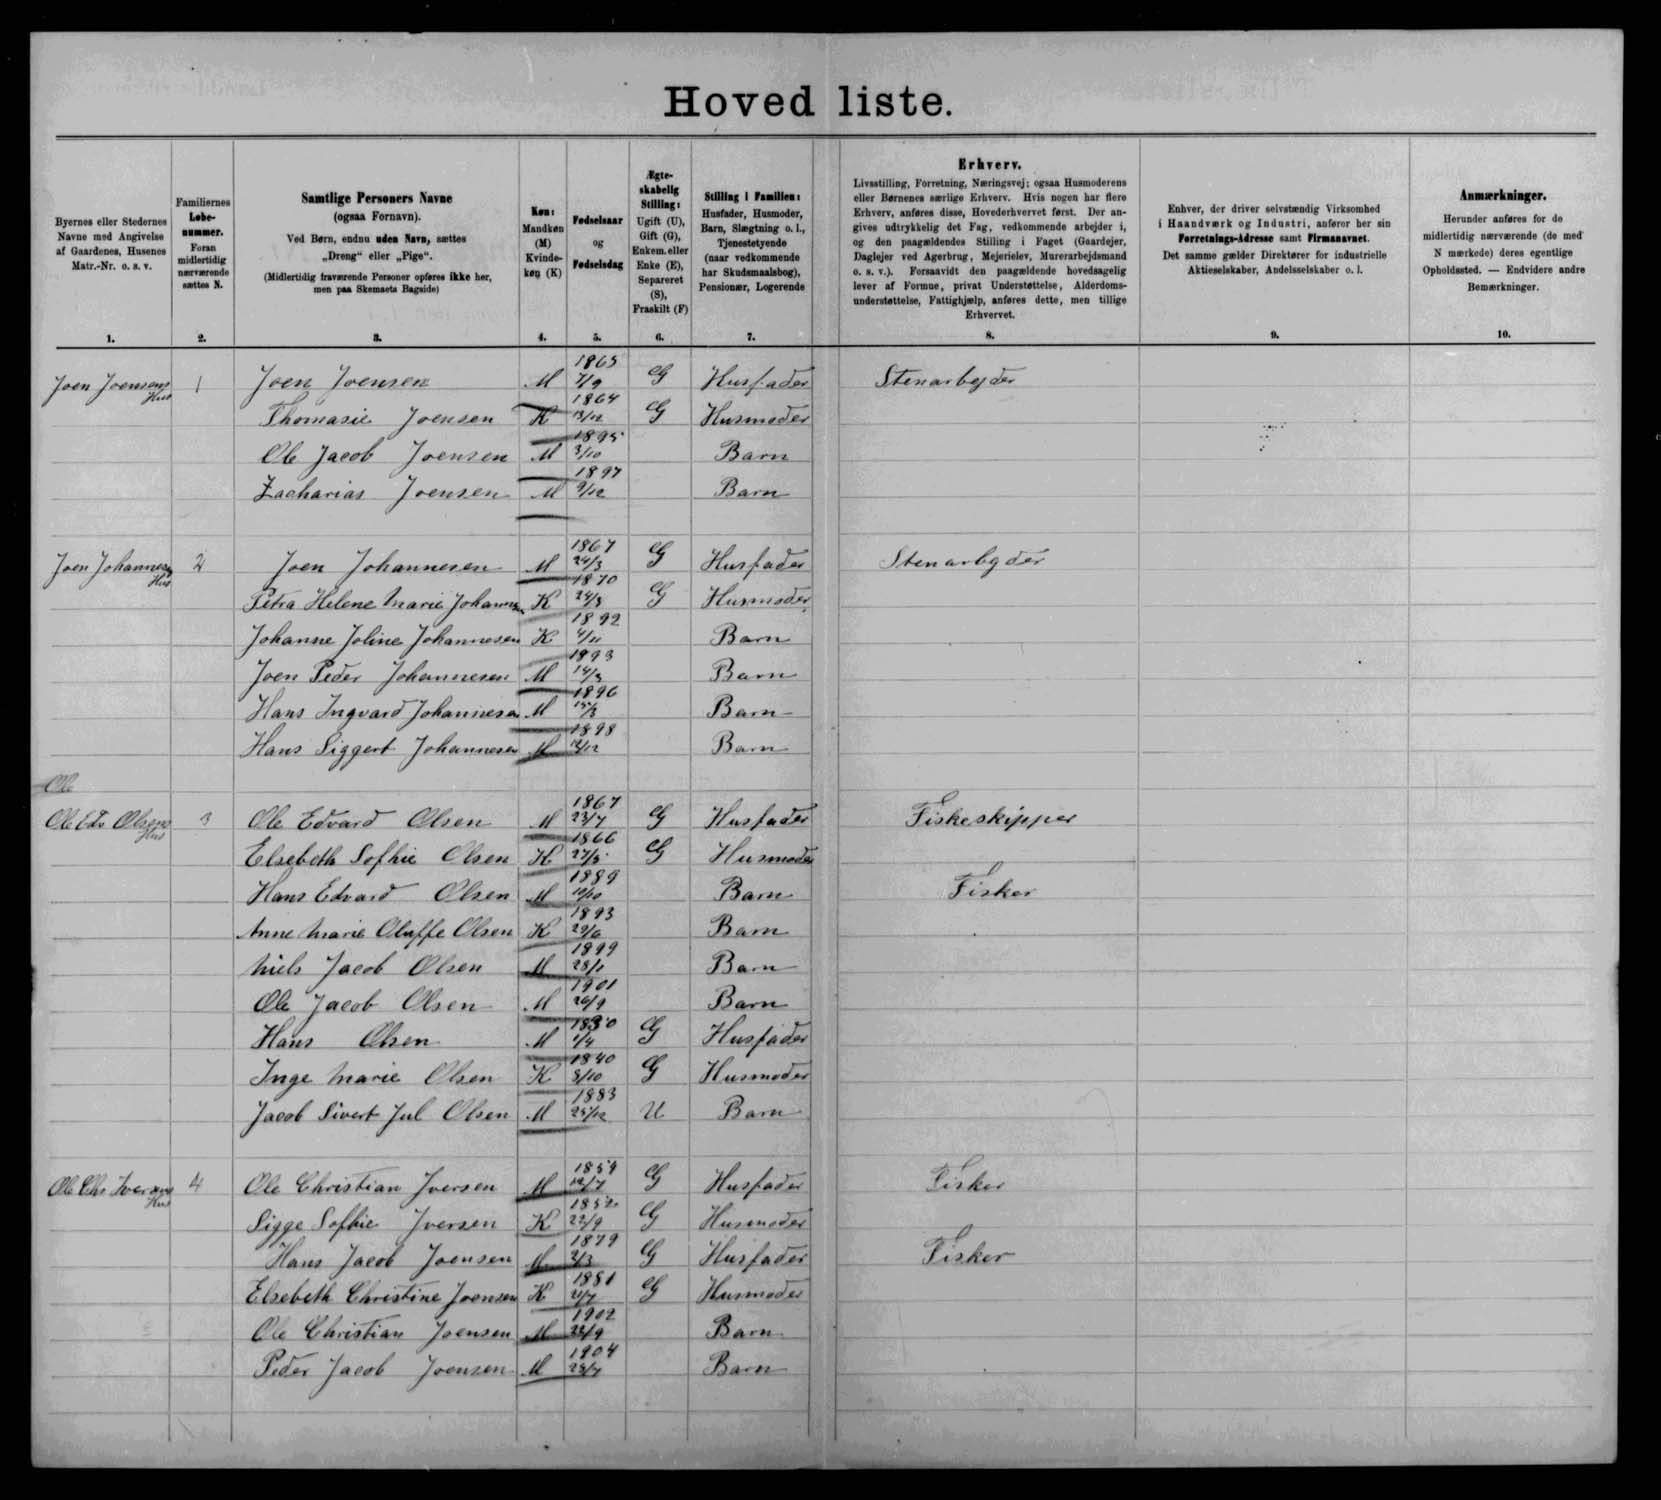 Hoved liste.
Byernes eller Stedernes
Navne med Angivelse
af Gaardenes, Husenes
Matr.-Nr. o. s. v.
1.
Familiernes
Løbe-
nummer.
Foran
midlertidig
nærværende
sættes N.
2.
Samtlige Personers Navne
(ogsaa Fornavn).
Ved Børn, endnu uden Navn, sættes
„Dreng“ eller „Pige“.
(Midlertidig fraværende Personer opføres ikke her,
men paa Skemaets Bagside)
3.
Køn:
Mandkøn
(M)
Kvinde-
køn (K)
4.
Fødselsaar
og
Fødselsdag
5.
Ægte-
skabelig
Stilling:
Ugift (U),
Gift (G),
Enkem.eller
Enke (E),
Separeret
(S),
Fraskilt (F)
6.
Stilling i Familien:
Husfader, Husmoder,
Barn, Slægtning o. l.,
Tjenestetyende
(naar vedkommende
har Skudsmaalsbog),
Pensionær, Logerende
7.
Erhverv.
Livsstilling, Forretning, Næringsvej; ogsaa Husmoderens
eller Børnenes særlige Erhverv. Hvis nogen har flere
Erhverv, anføres disse, Hovederhvervet først. Der an-
gives udtrykkelig det Fag, vedkommende arbejder i,
og den paagældendes Stilling i Faget (Gaardejer,
Daglejer ved Agerbrug, Mejerielev, Murerarbejdsmand
o. s. v.). Forsaavidt den paagældende hovedsagelig
lever af Formue, privat Understøttelse, Alderdoms-
understøttelse, Fattighjælp, anføres dette, men tillige
Erhvervet.
8.
Enhver, der driver selvstændig Virksomhed
i Haandværk og Industri, anfører her sin
Forretnings-Adresse samt Firmanavnet.
Det samme gælder Direktører for industrielle
Aktieselskaber, Andelsselskaber o. l.
9.
Anmærkninger.
Herunder anføres for de
midlertidig nærværende (de med
N mærkede) deres egentlige
Opholdssted. — Endvidere andre
Bemærkninger.
10.
Joen Joensens Hus 1 Joen Joensen M 1865 7/9 G Husfader Stenarbejder
Thomasie Joensen K 1864 13/12 G Husmoder
Ole Jacob Joensen M 1895 3/10 Barn
Zacharias Joensen M 1897 9/12 Barn
Joen Johannesen Hus 2 Joen Johannesen M 1867 24/3 G Husfader Stenarbejder
Petra Helene Marie Johannesen K 1870 24/8 G Husmoder
Johanne Joline Johannesen K 1892 4/11 Barn
Joen Peder Johannesen M 1893 14/3 Barn
Hans Ingvard Johannesen M 1896 15/3 Barn
Hans Siggert Johannesen M 1898 12/12 Barn
Ole
Ole Edv Olsens Hus 3 Ole Edvard Olsen M 1867 23/7 G Husfader Fiskeskipper
Elsebeth Sofhie Olsen K 1866 27/5 G Husmoder
Hans Edvard Olsen M 1889 10/10 Barn Fisker
Anne Marie Oluffe Olsen K 1893 29/6 Barn
Niels Jacob Olsen M 1899 28/1 Barn
Ole Jacob Olsen M 1901 26/9 Barn
Hans Olsen M 1830 1/4 G Husfader
Inge Marie Olsen K 1840 8/10 G Husmoder
Jacob Sivert Jul Olsen M 1883 25/12 U Barn
Ole Chr Iversens Hus 4 Ole Christian Iversen M 1854 12/7 G Husfader Fisker
Sigge Sofhie Iversen K 1852 22/9 G Husmoder
Hans Jacob Joensen M 1879 2/3 G Husfader Fisker
Elsebeth Christine Joensen K 1881 21/7 G Husmoder
Ole Christian Joensen M 1902 22/9 Barn
Peder Jacob Joensen M 1904 28/7 Barn